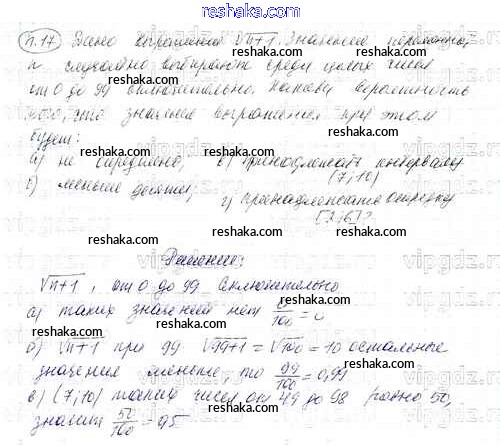 www.reshak.ru
п.17 Дано выражение √n+1. Значение переменной
n случайно выбирают среди целых чисел
reshaka.com reshaka.com
от 0 до 99 включительно. Какова вероятность
того, что значение выражения при этом
reshaka.com reshaka.com
будет:
а) не определено; в) принадлежать интервалу
(7;10)
б) меньше десяти; г) принадлежать отрезку
[2;6]?
reshaka.com reshaka.com
Решение:
√n+1, от 0 до 99 включительно
reshaka.com reshaka.com
а) таких значений нет 0/100 = 0
reshaka.com
б) √n+1 при 99 √99+1 = √100 = 10 остальные
значения меньше, то 99/100 = 0,99
reshaka.com reshaka.com
в) (7;10) таких чисел от 49 до 98 равно 50,
значит 50/100 = 0,5
reshaka.com